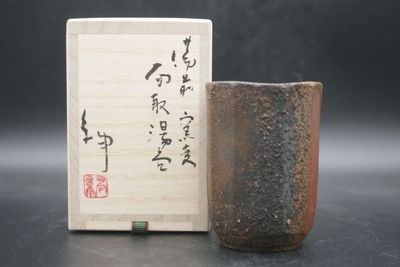 備前 窯変
面取湯呑